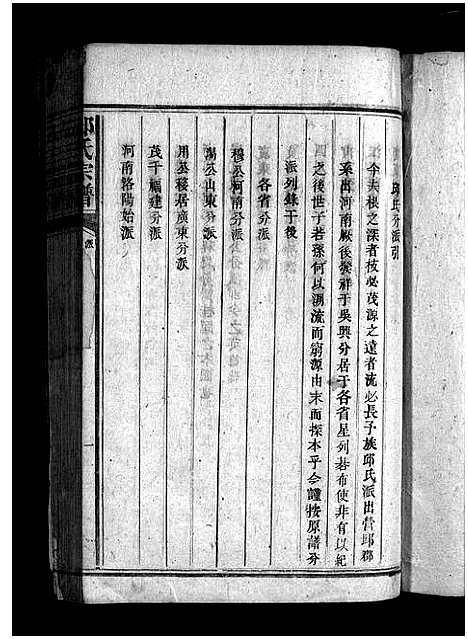 邱氏分派引
今夫根之深者枝必茂源之遠者流必長子族邱氏派出營邱郡
系出河南厥後發祥于吳興分居于各省星列碁布使非有以紀
之後世子若孫何以溯流而窮源由末而探本乎今謹按原譜分
派列錄于後
各省分派
穆公河南分派
湯公山東分派
用公移居廣東分派
茂千福建分派
河南洛陽始派
邱氏宗譜
派
一